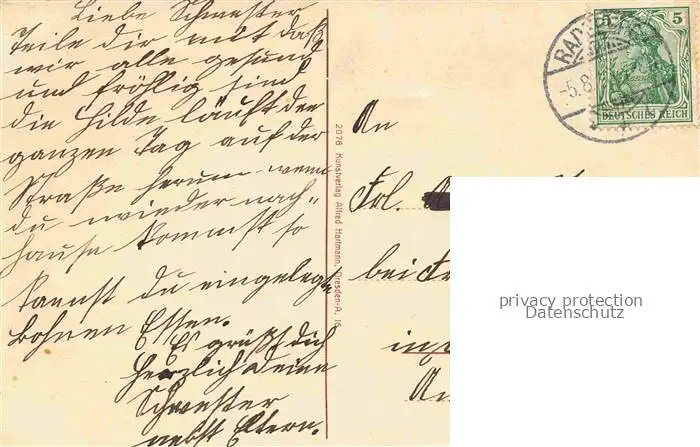 Liebe Schwester
Teile dir mit daß
wir alle gesund
und fröhlig sind
die Hilde läuft den
ganzen Tag auf der
Straße herum wenn
du wieder nach-
hause kommst so
kannst du eingelegte
Bohnen Essen.
Es grüßt dich
herzlich deine
Schwester
nebst Eltern.
2078 Kunstverlag Alfred Hartmann, Dresden-A. 16
5 5
DEUTSCHES REICH
RAD
-5.8
An
Frl.
bei
privacy protection
Datenschutz